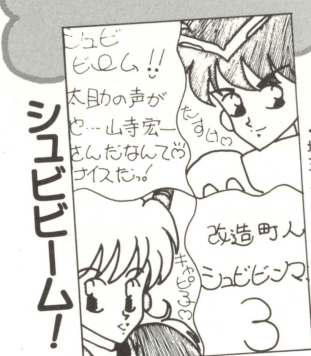 シュビビーム!
シュビ
ビーム!!
太助の声が
や…山寺宏一
さんだなんて♡
ナイスだっ!
たすけ♡
キャピ子♡
改造町人
シュビビンマン
3